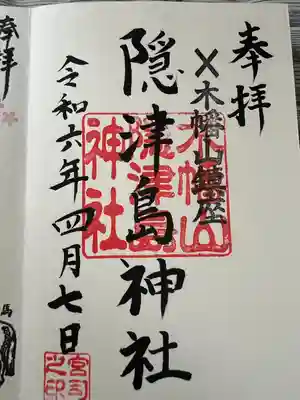 奉拝
〆木幡山鎮座
隠津島神社
木幡山
隠津島
神社
令和六年四月七日
宮司之印
奉拝
馬